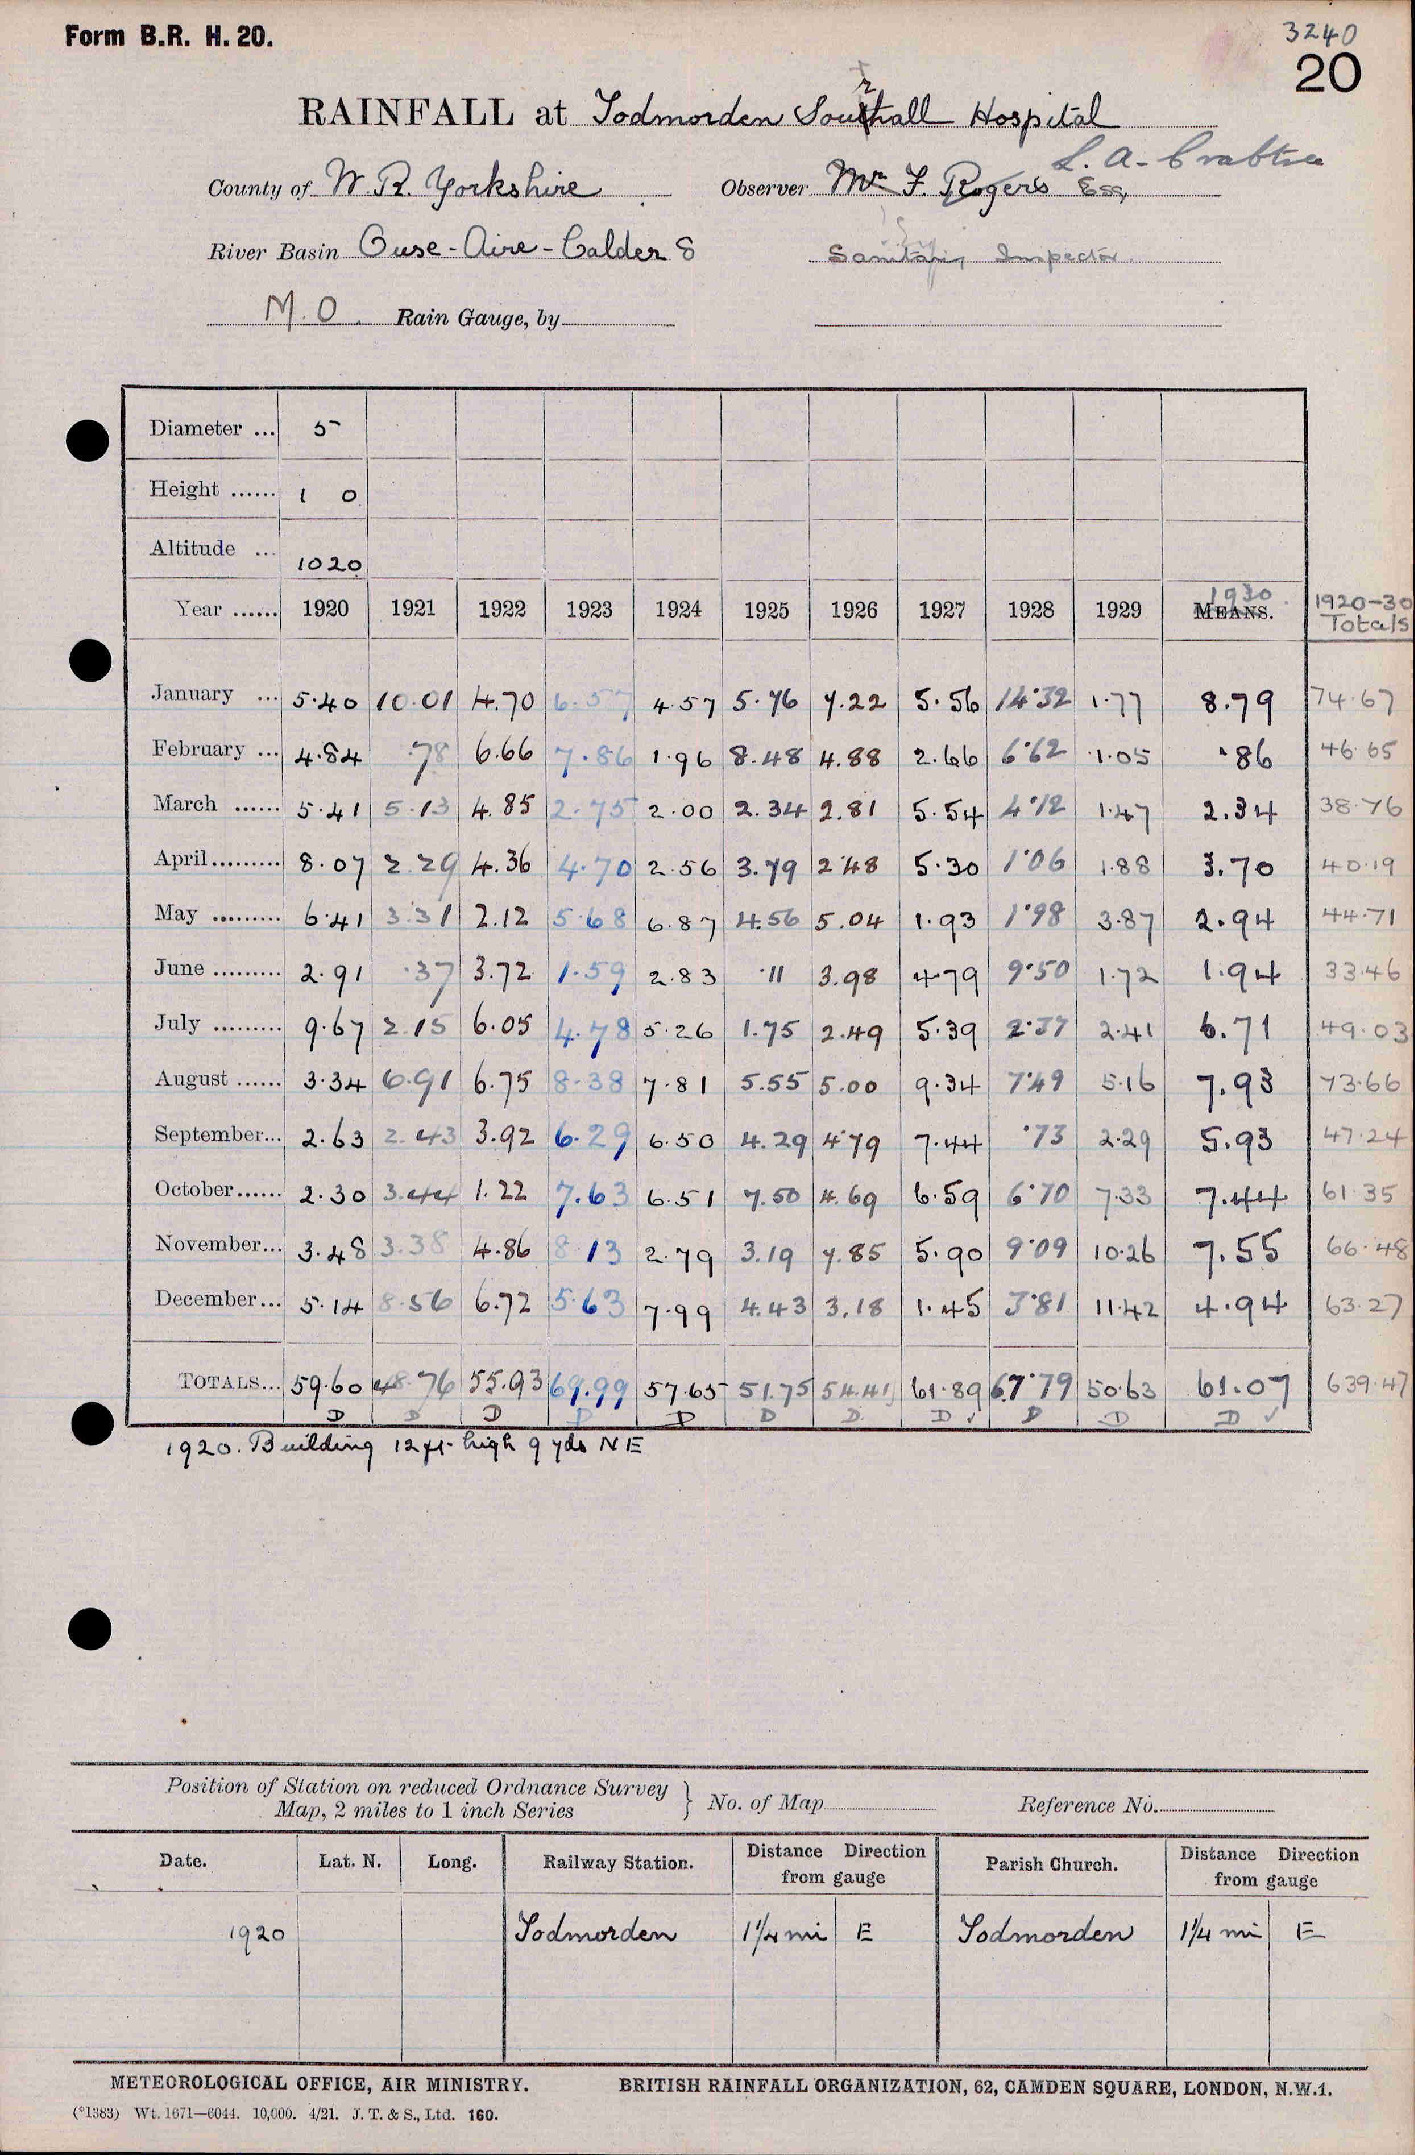 Form B.R. H. 20.
3240
20
RAINFALL at Todmorden Sourhall Hospital
L. A. Crabtree
County of W. R. Yorkshire Observer Mr F. Rogers Esq,
River Basin Ouse - Aire - Calder 8 Sanitary Inspector
M.O. Rain Gauge, by
Diameter ... 5
Height ...... 1 0
Altitude ... 1020
Year ...... 1920 1921 1922 1923 1924 1925 1926 1927 1928 1929 1930 MEANS. 1920-30 Totals
January ... 5.40 10.01 4.70 6.57 4.57 5.76 7.22 5.56 14.32 1.77 8.79 74.67
February ... 4.84 .78 6.66 7.86 1.96 8.48 4.88 2.66 6.62 1.05 .86 46.65
March ...... 5.41 5.13 4.85 2.75 2.00 2.34 2.81 5.54 4.12 1.47 2.34 38.76
April......... 8.07 2.29 4.36 4.70 2.56 3.79 2.48 5.30 1.06 1.88 3.70 40.19
May ......... 6.41 3.31 2.12 5.68 6.87 4.56 5.04 1.93 1.98 3.87 2.94 44.71
June ......... 2.91 .37 3.72 1.59 2.83 .11 3.98 4.79 9.50 1.72 1.94 33.46
July ......... 9.67 2.15 6.05 4.78 5.26 1.75 2.49 5.39 2.37 2.41 6.71 49.03
August ...... 3.34 6.91 6.75 8.38 7.81 5.55 5.00 9.34 7.49 5.16 7.93 73.66
September... 2.63 2.43 3.92 6.29 6.50 4.29 4.79 7.44 .73 2.29 5.93 47.24
October...... 2.30 3.44 1.22 7.63 6.51 7.50 4.69 6.59 6.70 7.33 7.44 61.35
November... 3.48 3.38 4.86 8.13 2.79 3.19 7.85 5.90 9.09 10.26 7.55 66.48
December... 5.14 8.56 6.72 5.63 7.99 4.43 3.18 1.45 3.81 11.42 4.94 63.27
TOTALS... 59.60 48.76 55.93 69.99 57.65 51.75 54.41 61.89 67.79 50.63 61.07 639.47
D D D D D D D D ✓ D D D ✓
1920. Building 12 ft high 9 yds NE
Position of Station on reduced Ordnance Survey
Map, 2 miles to 1 inch Series } No. of Map Reference No.
Date. Lat. N. Long. Railway Station. Distance Direction from gauge Parish Church. Distance Direction from gauge
1920 Todmorden 1¼ mi E Todmorden 1¼ mi E
METEOROLOGICAL OFFICE, AIR MINISTRY. BRITISH RAINFALL ORGANIZATION, 62, CAMDEN SQUARE, LONDON, N.W.1.
(*1383) Wt. 1671—6044. 10,000. 4/21. J. T. & S., Ltd. 160.